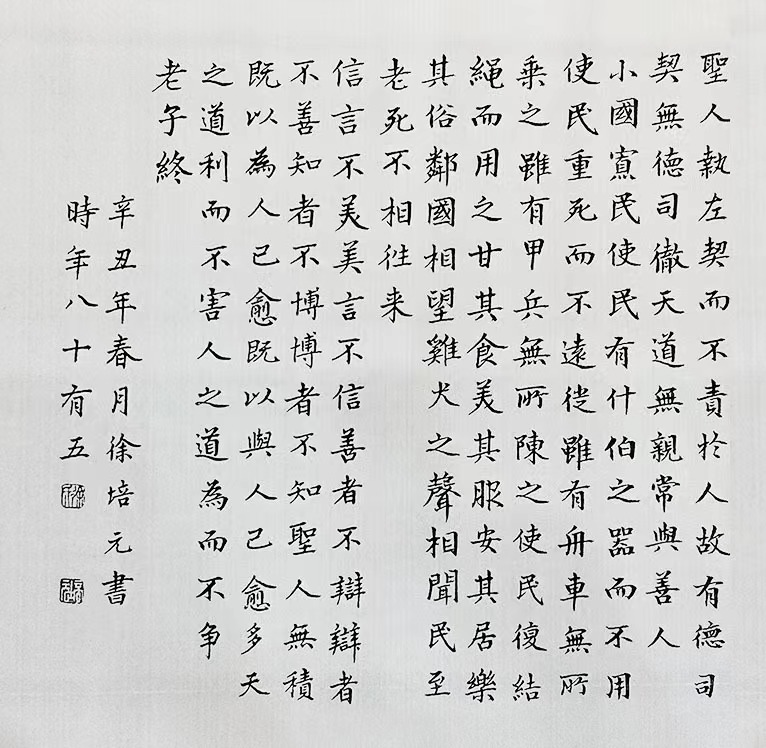 聖人執左契而不責於人故有德司
契無德司徹天道無親常與善人
小國寡民使民有什伯之器而不用
使民重死而不遠徙雖有舟車無所
乘之雖有甲兵無所陳之使民復結
繩而用之甘其食美其服安其居樂
其俗鄰國相望雞犬之聲相聞民至
老死不相往来
信言不美美言不信善者不辯辯者
不善知者不博博者不知聖人無積
既以為人已愈既以與人己愈多天
之道利而不害人之道為而不争
老子終
辛丑年春月徐培元書
時年八十有五